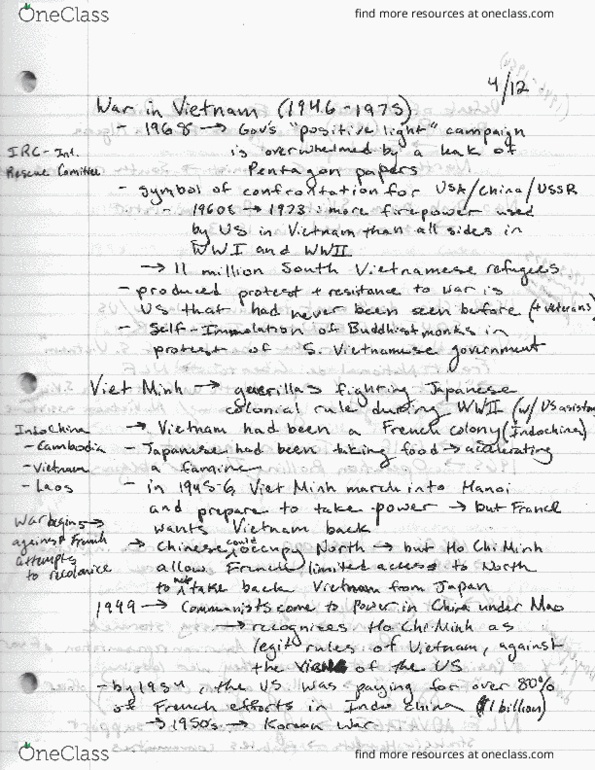 OneClass
find more resources at oneclass.com
4/12
War in Vietnam (1946-1975)
- 1968 → Gov's "positive light" campaign
is overwhelmed by a leak of
Pentagon papers
IRC - Int.
Rescue Comittee
- symbol of confrontation for USA/China/USSR
- 1960s → 1973 : more firepower used
by US in Vietnam than all sides in
WWI and WWII
→ 11 million South Vietnamese refugees
- produced protest + resistance to war is
US that had never been seen before (+ veterans)
- Self-Immolation of Buddhist monks in
protest of S. Vietnamese government
Viet Minh → guerillas fighting Japanese
colonial rule during WWII (w/ US
→ Vietnam had been a French colony (Indochina)
Indochina
- Cambodia
- Vietnam
- Laos
- Japanese had been taking food → accelerating
a famine
- in 1945-6, Viet Minh march into Hanoi
and prepare to take power → but France
wants Vietnam back
War begins →
against French
attempts
to recolonize
→ Chinese could occupy North → but Ho Chi Minh
allow French limited access to North
to help take back Vietnam from Japan
1949 → Communists come to power in China under Mao
→ recognizes Ho Chi Minh as
legit rules of Vietnam, against
the of the US
- by 1954, the US was paying for over 80%
of French efforts in Indo China ($1 billion)
→ 1950's → Korean War
OneClass
find more resources at oneclass.com